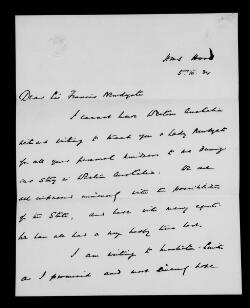 HMS Hood
5. III. 24
Dear Sir Francis Newdegate
I cannot leave Western Australia
without writing to thank you & Lady Newdegate
for all your personal kindness to us during
our stay in Western Australia. We are
all impressed with the possibilities
of the State, and leave with many regrets.
We have all had a very happy time here.
I am writing to
as I promised and most sincerely hope